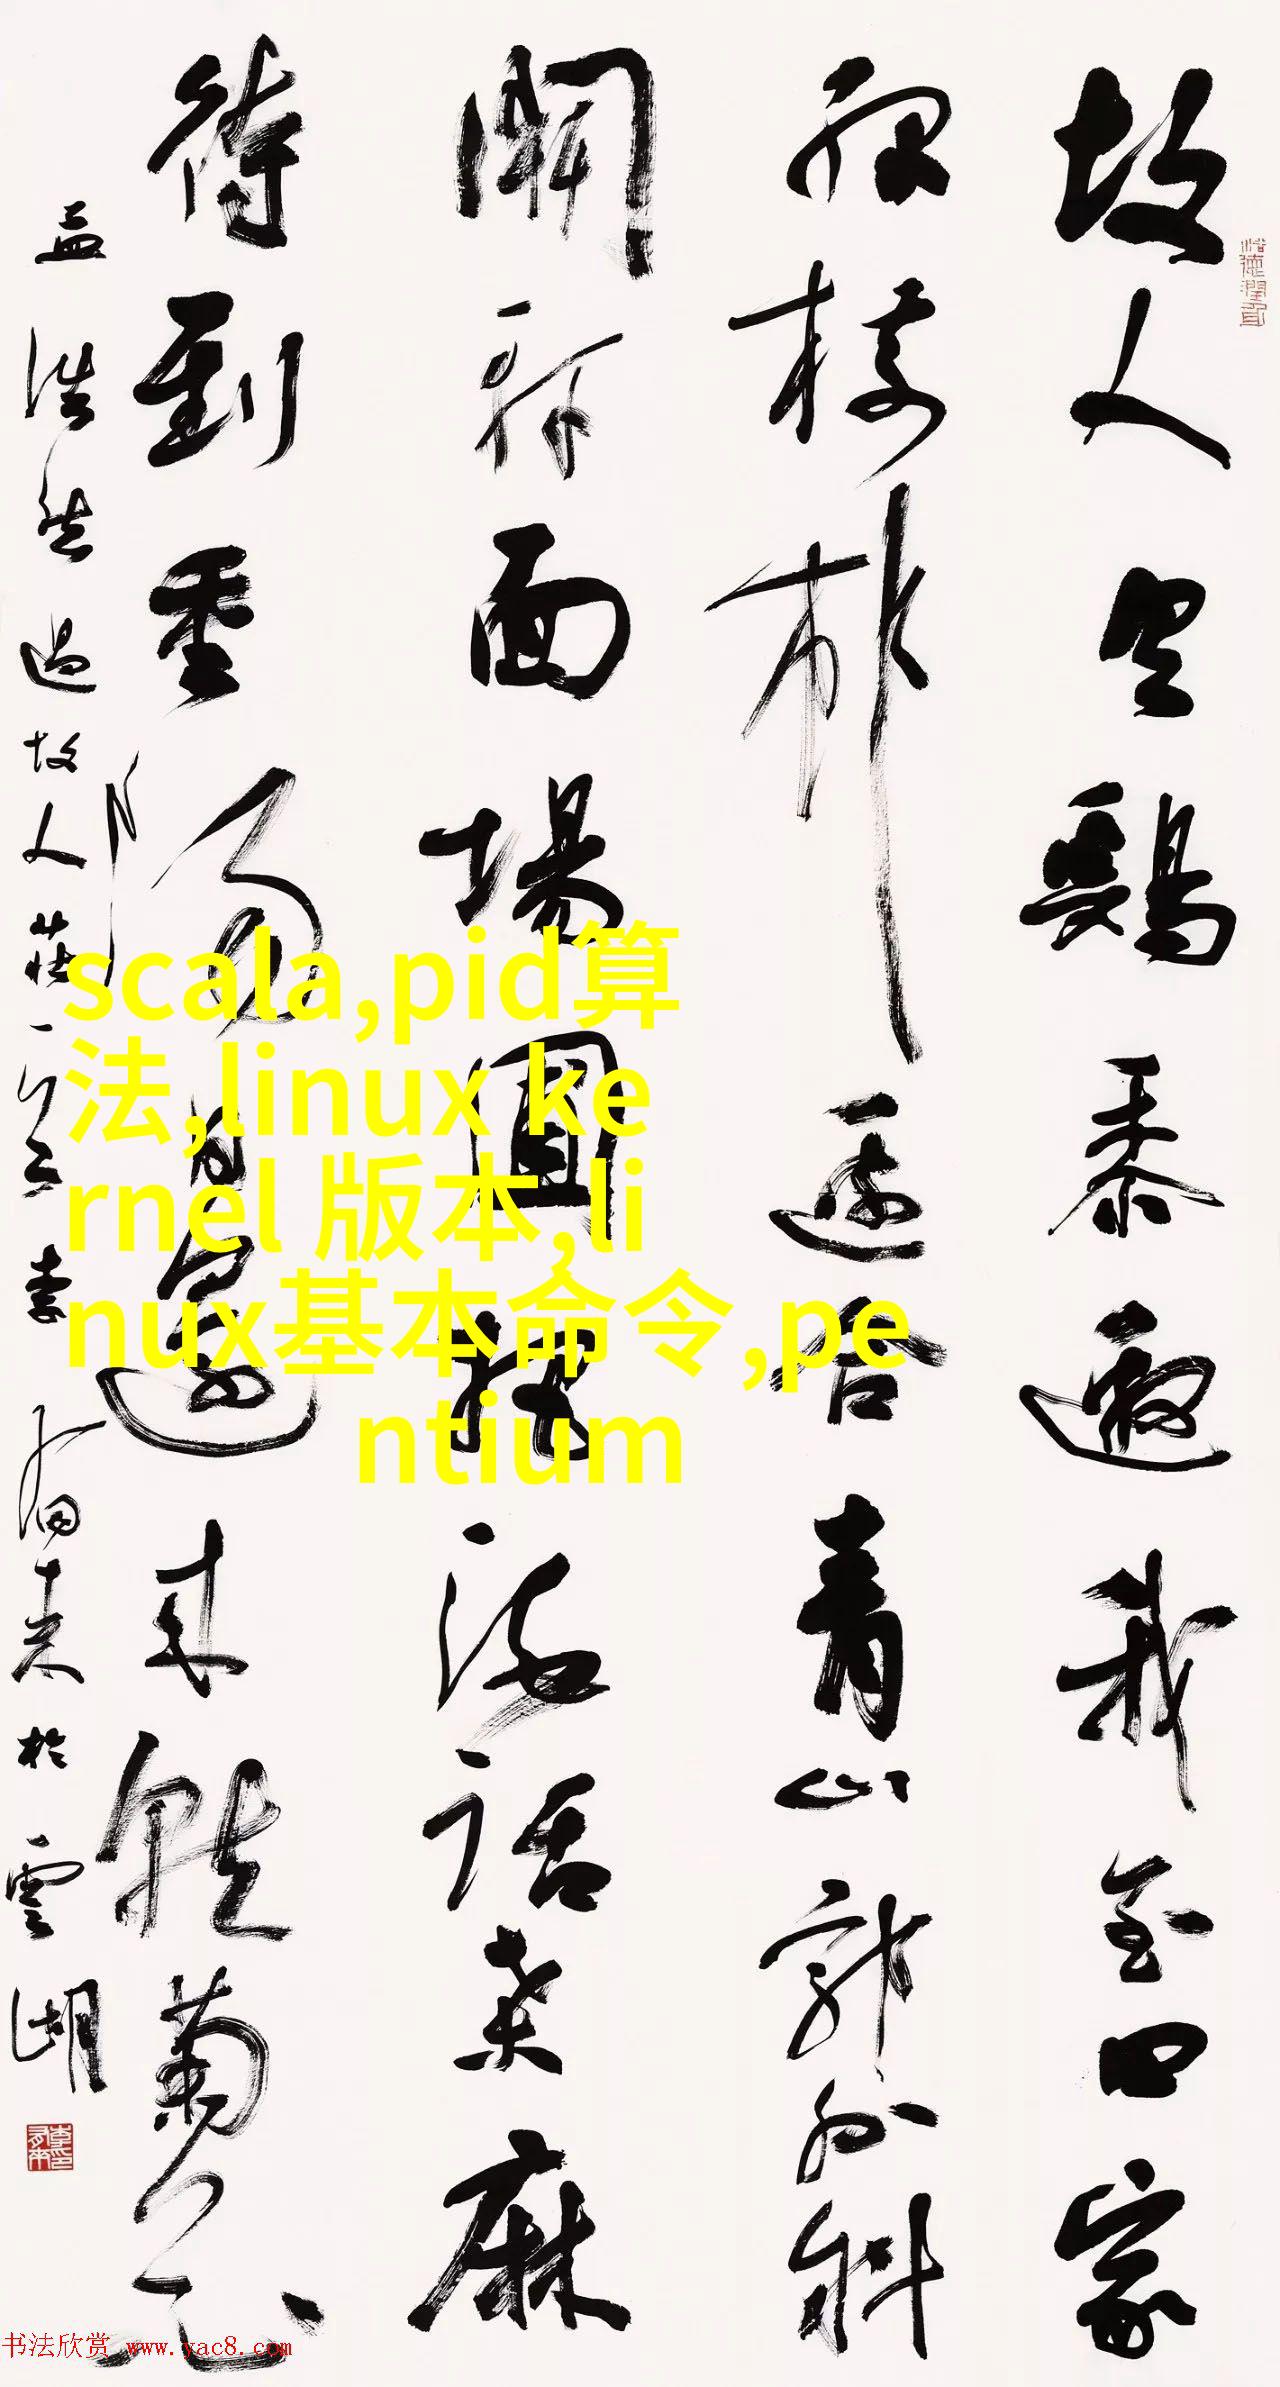 故人具鷄黍邀我至田家
緑樹村邊合青山郭外斜
開軒面場圃把酒話桑麻
待到重陽日還來就菊花
孟浩然過故人莊一首 李有来於雲湖
scala,pid算
法,linux ke
rnel 版本,li
nux基本命令,pe
ntium
书法欣赏 www.yac8.com